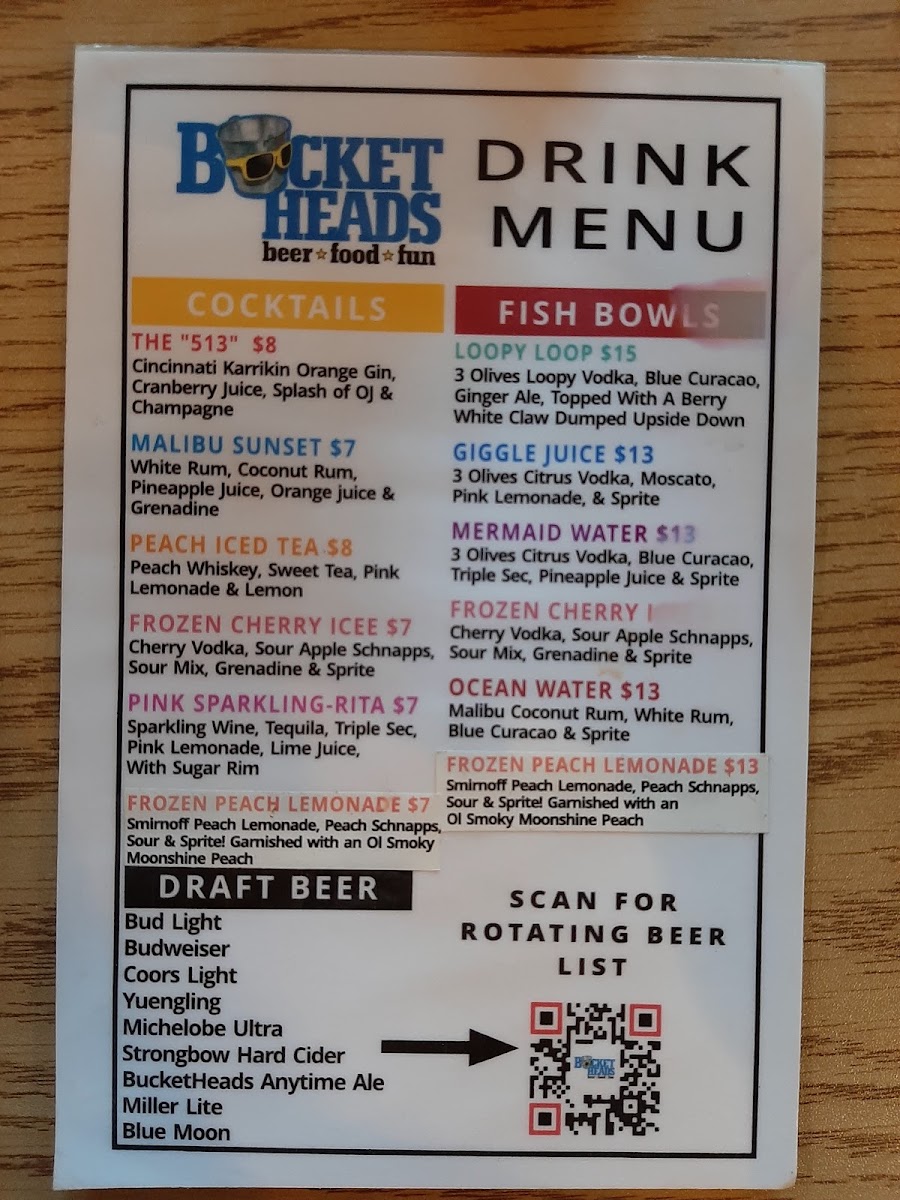 BUCKET
HEADS
beer☆food☆fun
DRINK
MENU
COCKTAILS
THE "513" $8
Cincinnati Karrikin Orange Gin,
Cranberry Juice, Splash of OJ &
Champagne
MALIBU SUNSET $7
White Rum, Coconut Rum,
Pineapple Juice, Orange juice &
Grenadine
PEACH ICED TEA $8
Peach Whiskey, Sweet Tea, Pink
Lemonade & Lemon
FROZEN CHERRY ICEE $7
Cherry Vodka, Sour Apple Schnapps,
Sour Mix, Grenadine & Sprite
PINK SPARKLING-RITA $7
Sparkling Wine, Tequila, Triple Sec,
Pink Lemonade, Lime Juice,
With Sugar Rim
FROZEN PEACH LEMONADE $7
Smirnoff Peach Lemonade, Peach Schnapps,
Sour & Sprite! Garnished with an Ol Smoky
Moonshine Peach
FISH BOWLS
LOOPY LOOP $15
3 Olives Loopy Vodka, Blue Curacao,
Ginger Ale, Topped With A Berry
White Claw Dumped Upside Down
GIGGLE JUICE $13
3 Olives Citrus Vodka, Moscato,
Pink Lemonade, & Sprite
MERMAID WATER $13
3 Olives Citrus Vodka, Blue Curacao,
Triple Sec, Pineapple Juice & Sprite
FROZEN CHERRY
Cherry Vodka, Sour Apple Schnapps,
Sour Mix, Grenadine & Sprite
OCEAN WATER $13
Malibu Coconut Rum, White Rum,
Blue Curacao & Sprite
FROZEN PEACH LEMONADE $13
Smirnoff Peach Lemonade, Peach Schnapps,
Sour & Sprite! Garnished with an
Ol Smoky Moonshine Peach
DRAFT BEER
Bud Light
Budweiser
Coors Light
Yuengling
Michelobe Ultra
Strongbow Hard Cider
BucketHeads Anytime Ale
Miller Lite
Blue Moon
SCAN FOR
ROTATING BEER
LIST
BUCKET
HEADS